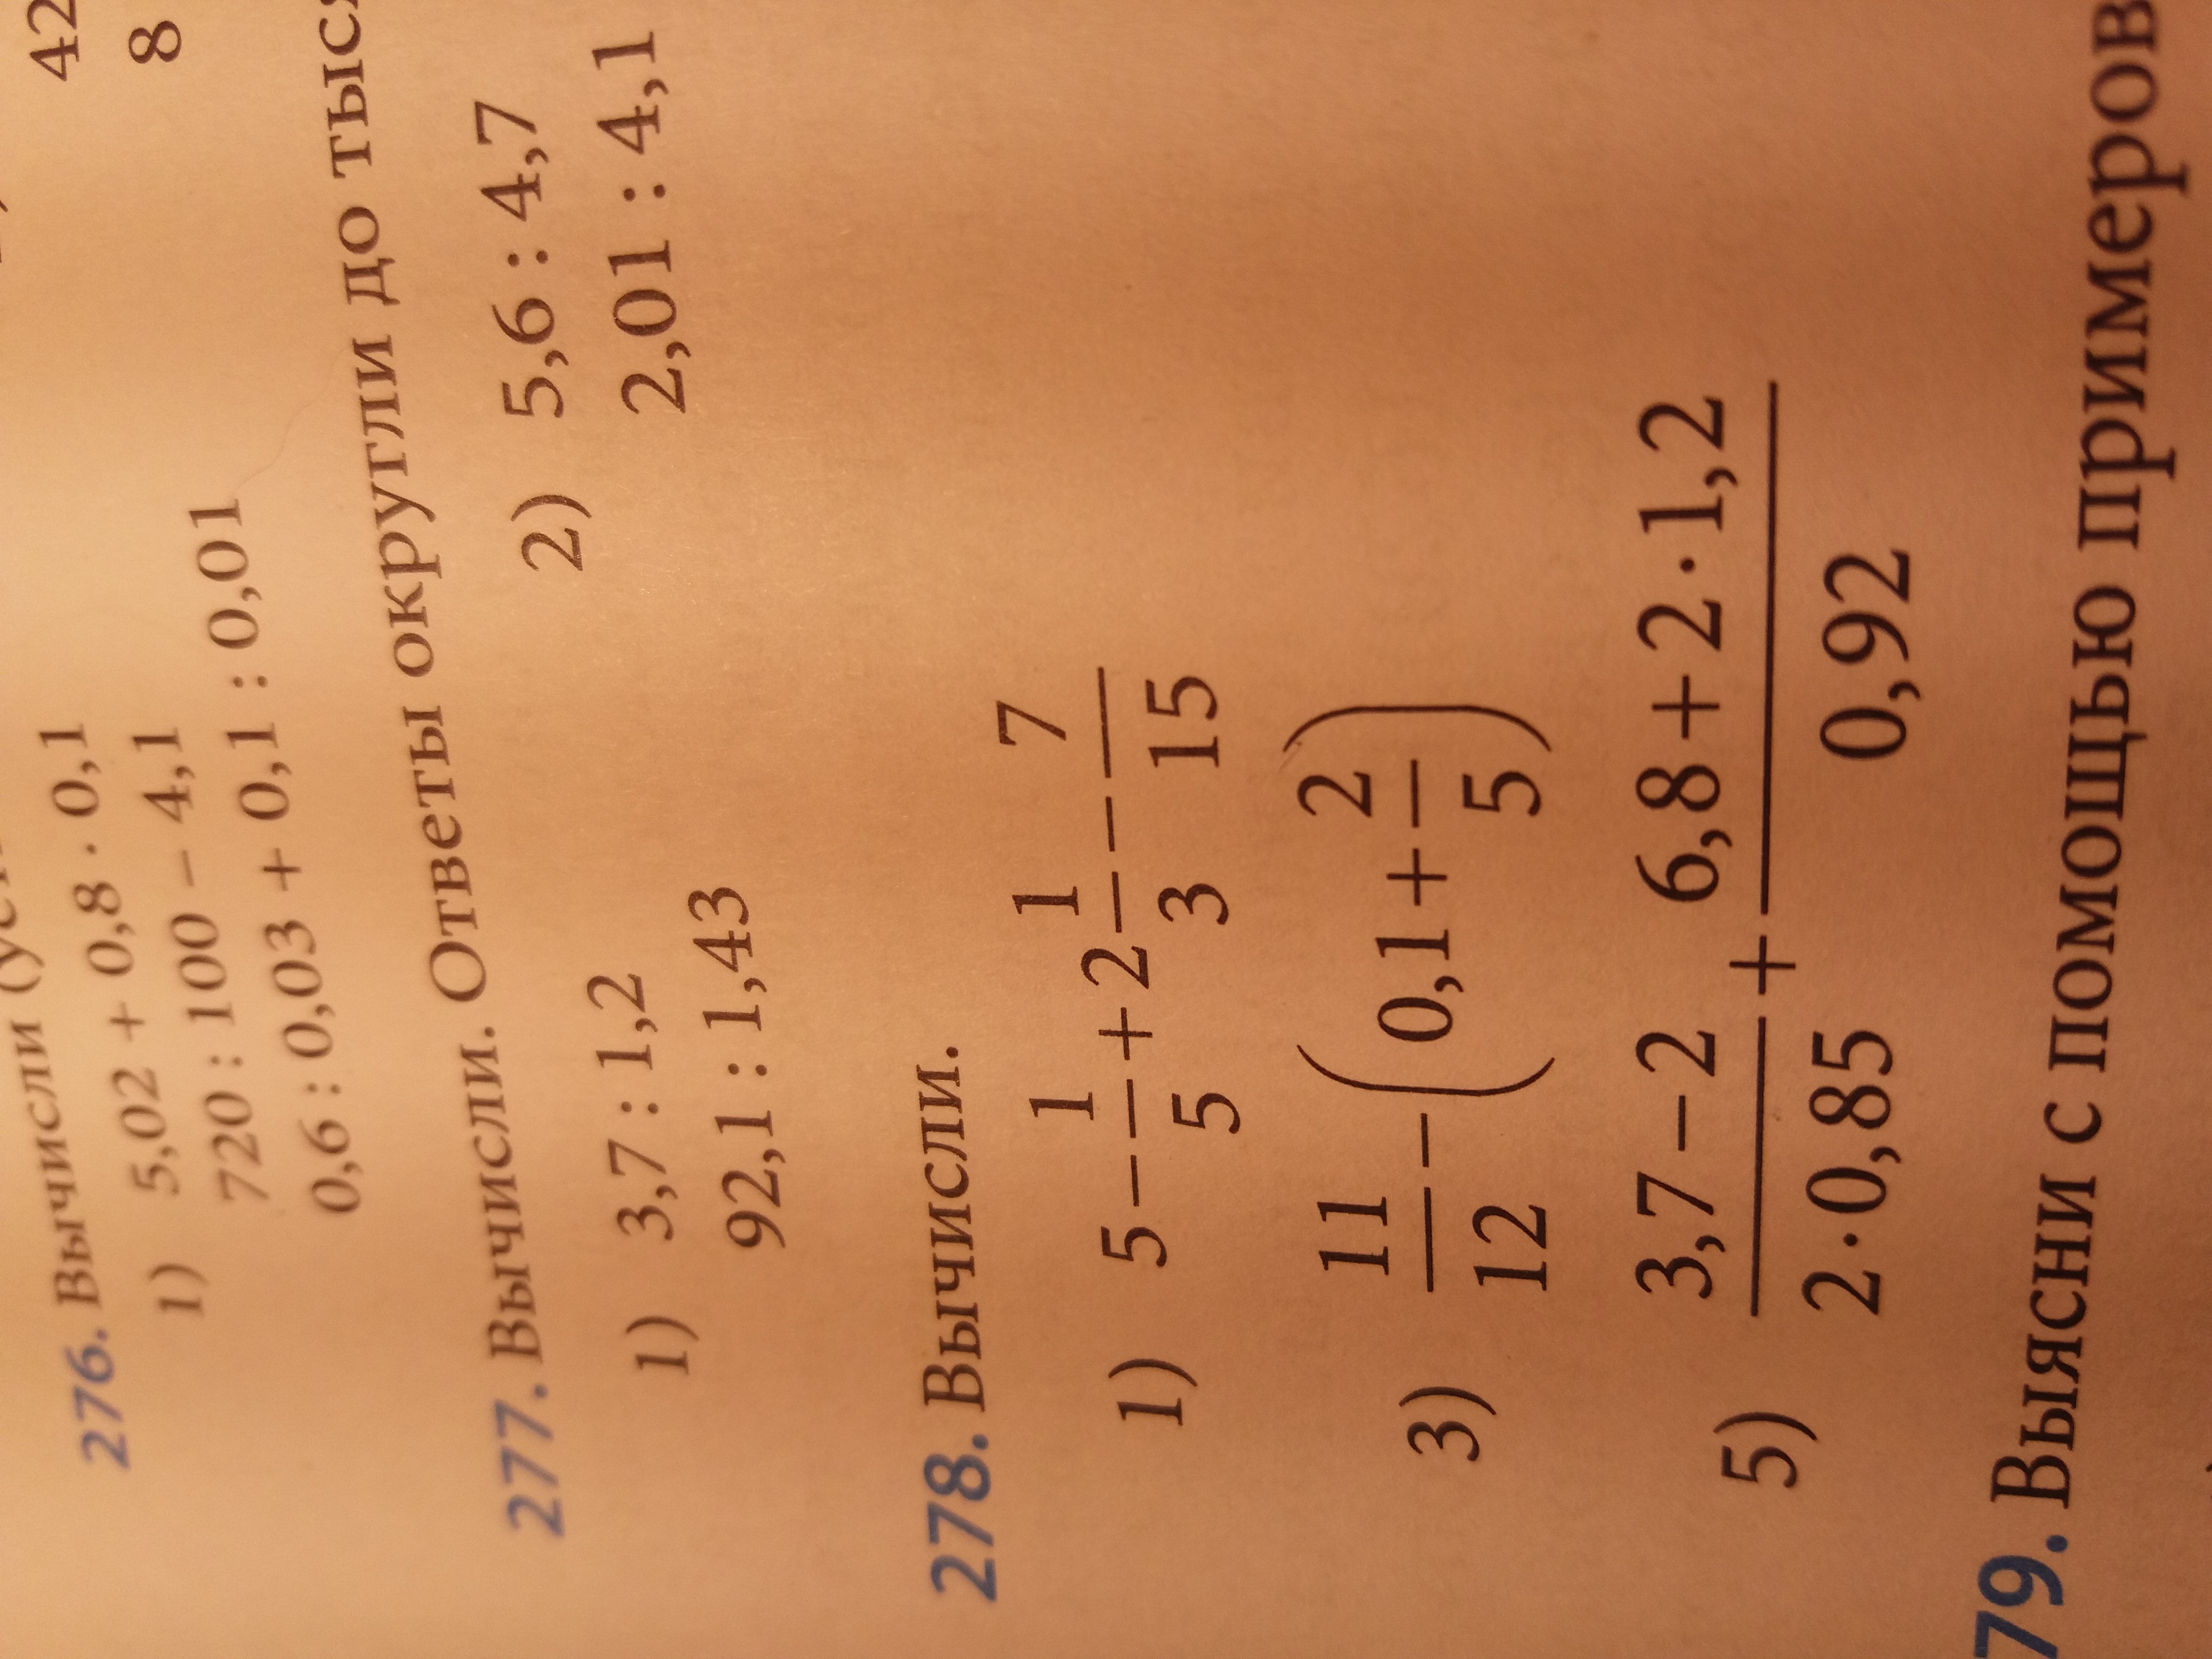 42
8
276. Вычисли
1) 5,02 + 0,8 · 0,1
720 : 100 − 4,1
0,6 : 0,03 + 0,1 : 0,01
277. Вычисли. Ответы округли до
1) 3,7 : 1,2 2) 5,6 : 4,7
92,1 : 1,43 2,01 : 4,1
278. Вычисли.
1) 5 − 1/5 + 2 1/3 − 7/15
3) 11/12 − (0,1 + 2/5)
5) (3,7 − 2)/(2 · 0,85) + (6,8 + 2 · 1,2)/0,92
79. Выясни с помощью примеров